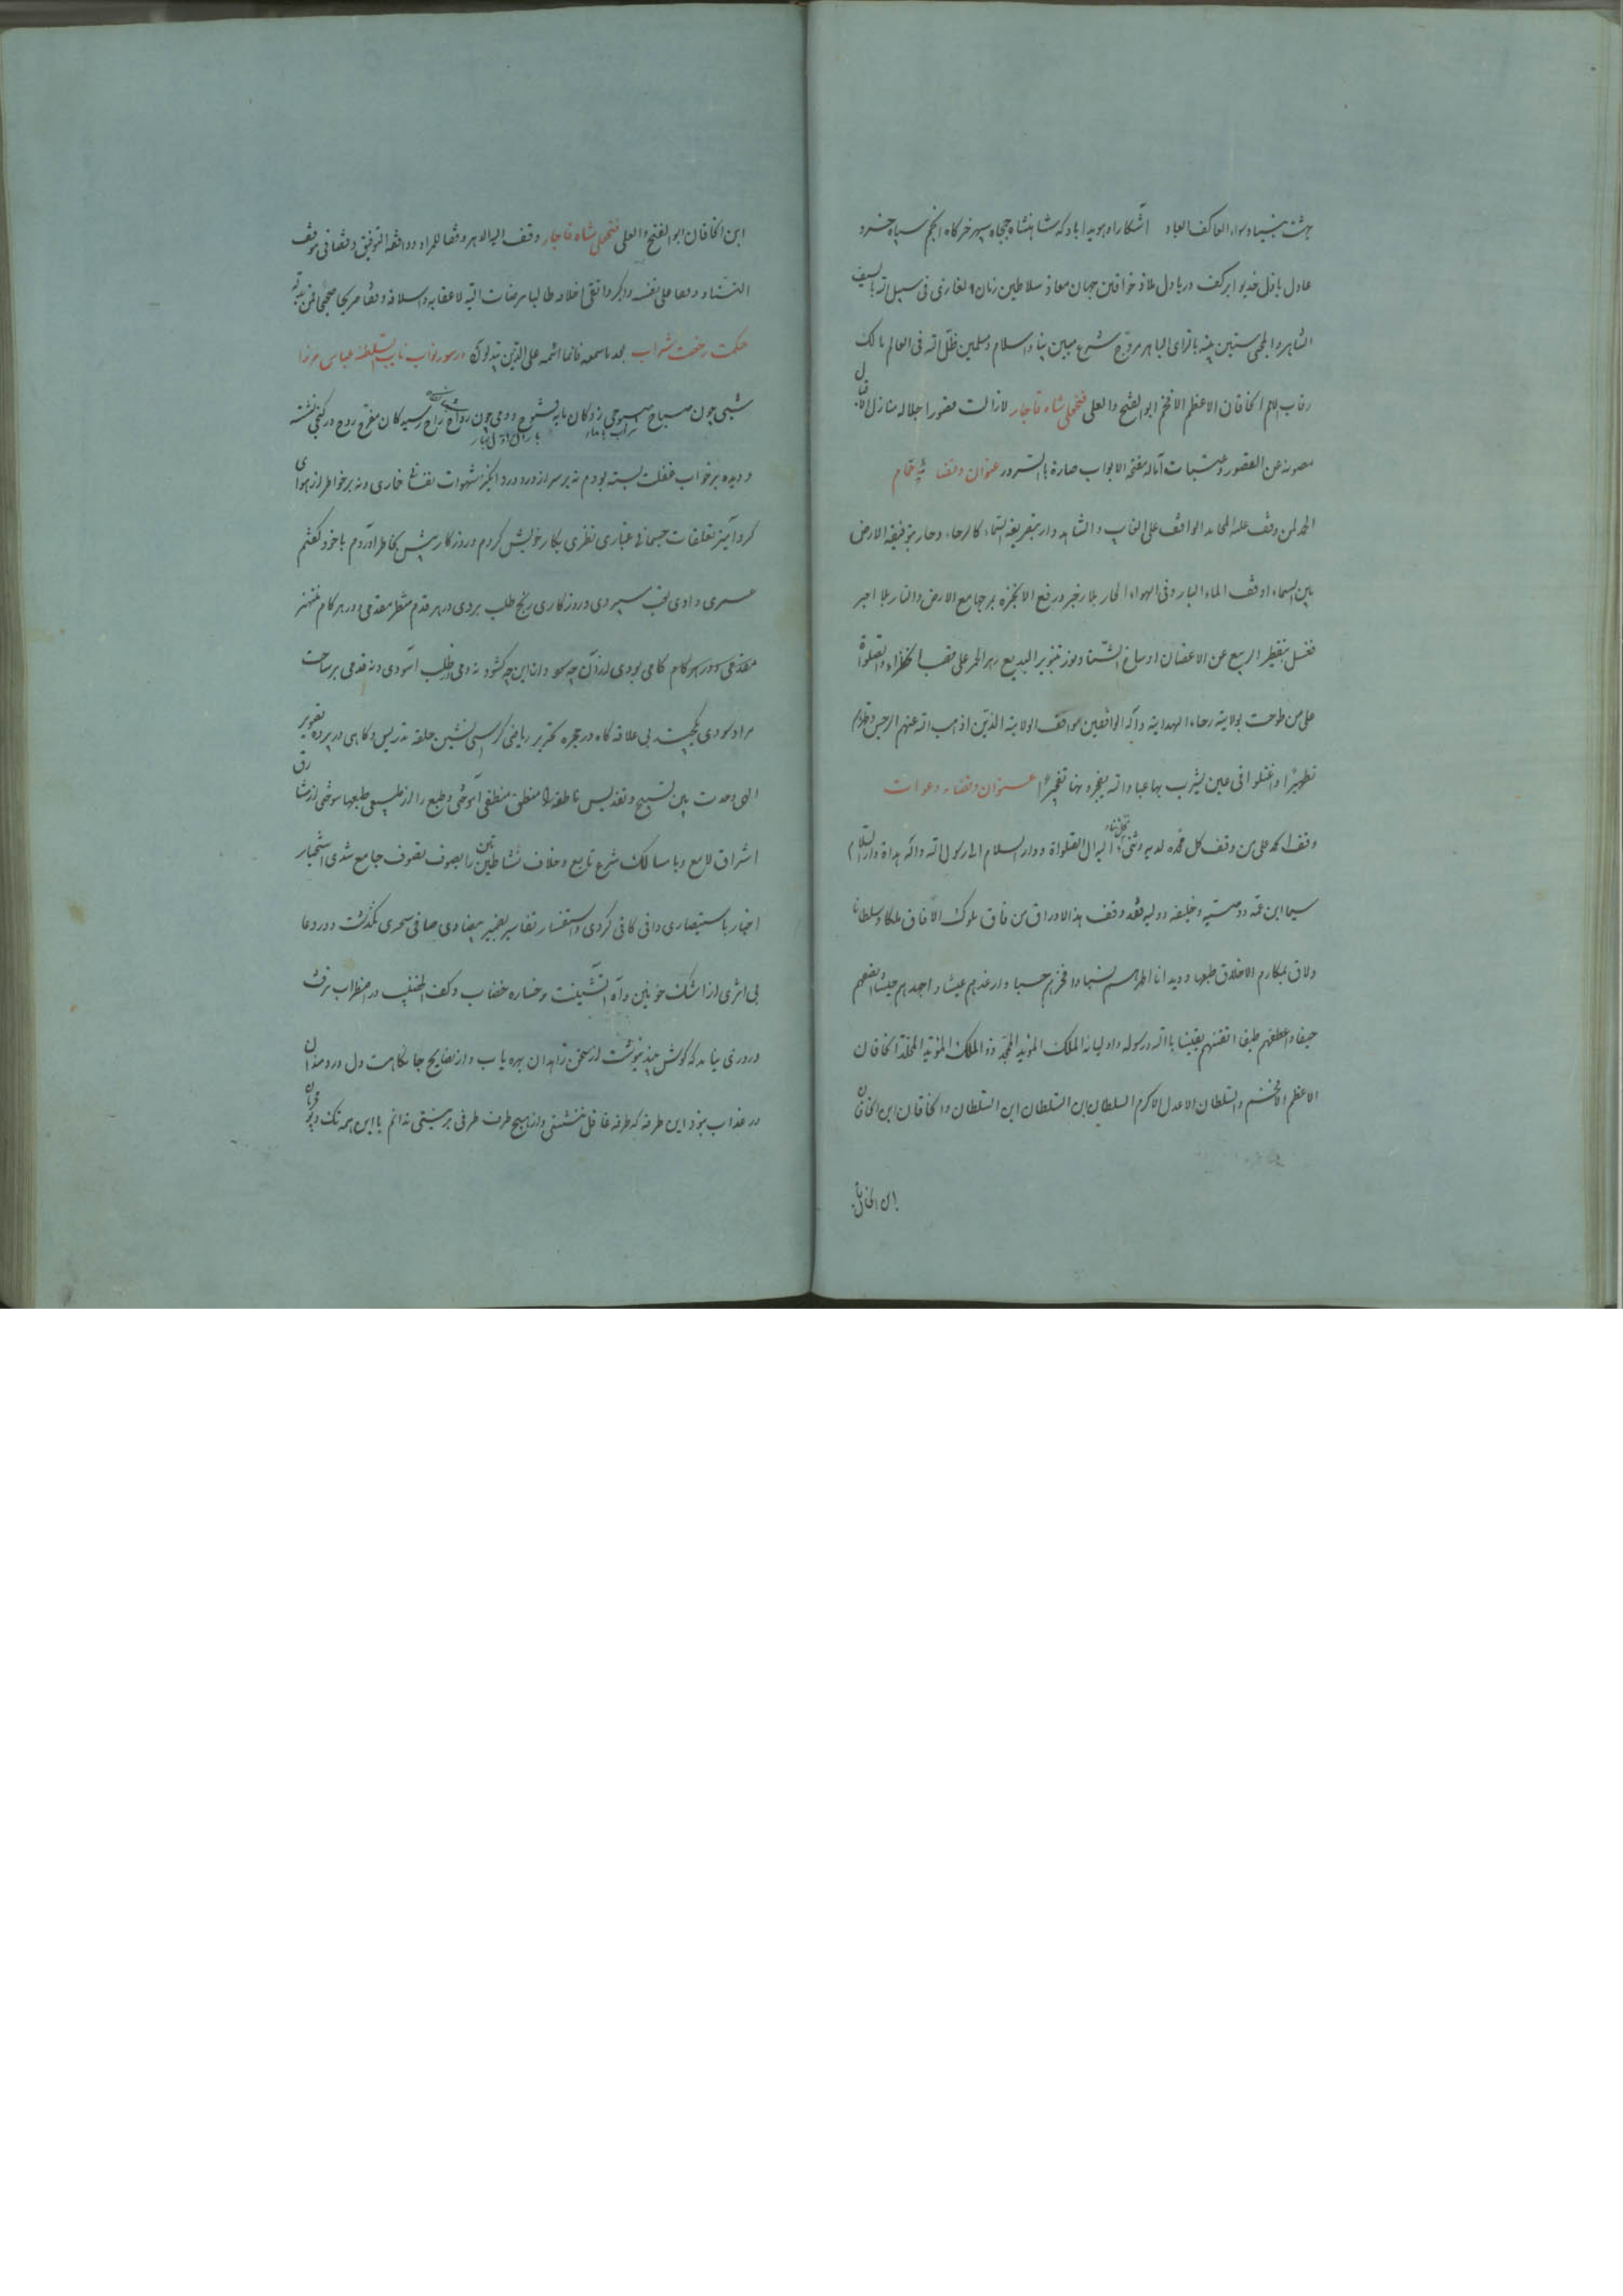 بهشت بنیاد سواء العاکف العباد آشکارا و هویدا باد که شاهنشاه جمجاه سپهر خرگاه انجم سپاه خسرو
عادل باذل خدیو ابر کف دریا دل ملاذ خواقین جهان معاذ سلاطین زمان الغازی فی سبیل الله بالسیف
الشاهر و المحیی سنن نبیه بالرای الباهر مروج شرع مبین پناه اسلام و مسلمین ظل الله فی العالم مالک
رقاب الامم الخاقان الاعظم الافخم ابو الفتح و العلی فتحعلی شاه قاجار لازالت قصور اجلاله منازل الاقبال
مصونة عن القصور و عتبات آماله مفتحة الابواب صارة بالسرور عنوان وقفنامه حمام
الحمد لمن وقف علیه المحامد الواقف علی الغایب و الشاهد دار بتفریقه السماء کالرحاء و حار بتوفیقه الارض
بین السماء اوقف الماء البارد فی الهواء الحار بلا زجر و رفع الابخرة بر جامع الارض و النار بلا اجر
فغسل بتقطیر الربیع عن الاغصان اوساخ الشتاء و نور بتنویر البدیع زهر الحمر علی قضب الخضراء و الصلوة
علی من طوحت بولایته رحاء الهدایة و آله الواقفین مواقف الولایة الذین اذهب الله عنهم الرجس و طهرهم
تطهیرا و اغتسلوا فی عین یشرب بها عباد الله یفجرونها تفجیرا عنوان وقفنامه دعوات
وقف الحمد علی من وقف کل حمده لدیه و ثنی الیه ال الصلواة و دار السلام الی رسول الله و آله هداة دار السلام
سیما ابن عمه و وصیه و خلیفه و ولیه فقد وقف هذه الاوراق من فاق ملوک الآفاق ملکا و سلطانا
و لاق بمکارم الاخلاق طبعا و دیدانا اطهرهم نسبا و افخرهم حسبا و ارغدهم عیشا و اجهدهم جیشا
سیفا و اعطفهم طیفا اتقنهم یقینا بالله و رسوله و اولیائه الملک المؤید الممجد ذو الملک المؤبد المخلد الخاقان
الاعظم الافخم و السلطان الاعدل الاکرم السلطان ابن السلطان ابن السلطان و الخاقان ابن الخاقان
ابن الخاقان
ابن الخاقان ابو الفتح و العلی فتحعلی شاه قاجار وقف الیالی الدهر وقفا للمراد و وافقه التوفیق وقفا فی موقف
التناد وقفا علی نفسه و اکبر و اتقی اخلافه طالبا مرضات الله لاعقابه و اسلافه وقفا صریحا صحیحا فمن بدله
بعد ما سمعه فانما اثمه علی الذین یبدلونه در سواد نواب نایب السلطنه عباس میرزا
شبی چون صباح صبوحی زدگان مایه فتوح و دمی چون رواح راح رسیدگان مفرح روح در کنجی نشسته
و دیده بر خواب غفلت بسته بودم نه بر سر از درد درد انگیز شهوات نفسانی خماری و نه بر خواطر از هوای
گرد آمیز تعلقات جسمانی غباری نظری بکار خویش کردم و روزگار پیش بخاطر آوردم با خود گفتم
عمری وادی تعب سپردی و روزگاری رنج طلب بردی در هر قدم منتظر مقدمی و در هر گام منتهز
مغنمی و در هر گام کامی بودی از آن چه سود و از این چه گشود نه دمی از طلب آسودی و نه قدمی بر ساحت
مراد سودی یکچند بی علاقه گاه در حجره تحریر ریاضی کرسی نشین حلقه تدریس و گاهی در پرده تقریر
الهی وحدت بین تسبیح و تقدیس ناطقه را منطق منطقی آموختی و طبع را از طبیعی طبعها سوختی از مشارق
اشراق لامع و با مسالک شرع تابع و خلاف مشائین را بصوف تصوف جامع شدی استخبار
اخبار باستبصاری وافی کافی کردی و استفسار تفاسیر بضمیر بیضاوی صافی سحری نگذشت و در دعا
بی اثری از اشک خونین و آه آتشینت رخساره خضاب و کف الخضیب در اضطراب نرفت
و روزی نیامد که گوش پند نیوشت از سخن زاهدان بهره یاب و از نصایح جانکاهت دل دردمندان
در عذاب نبود این طرفه که طرفه غافل ننشستی و از هیچ طرف طرفی بر نبستی ندانم با این همه تک و پو